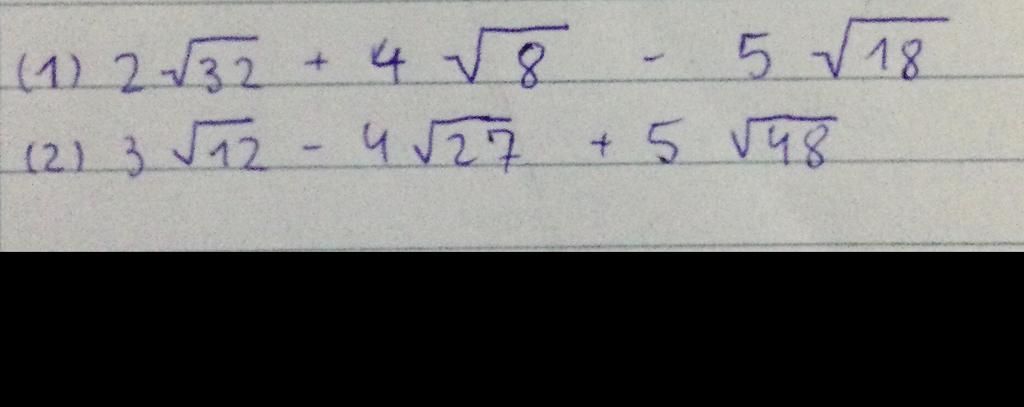 (1) 2 √32 + 4 √8 - 5 √18
(2) 3 √12 - 4 √27 + 5 √48